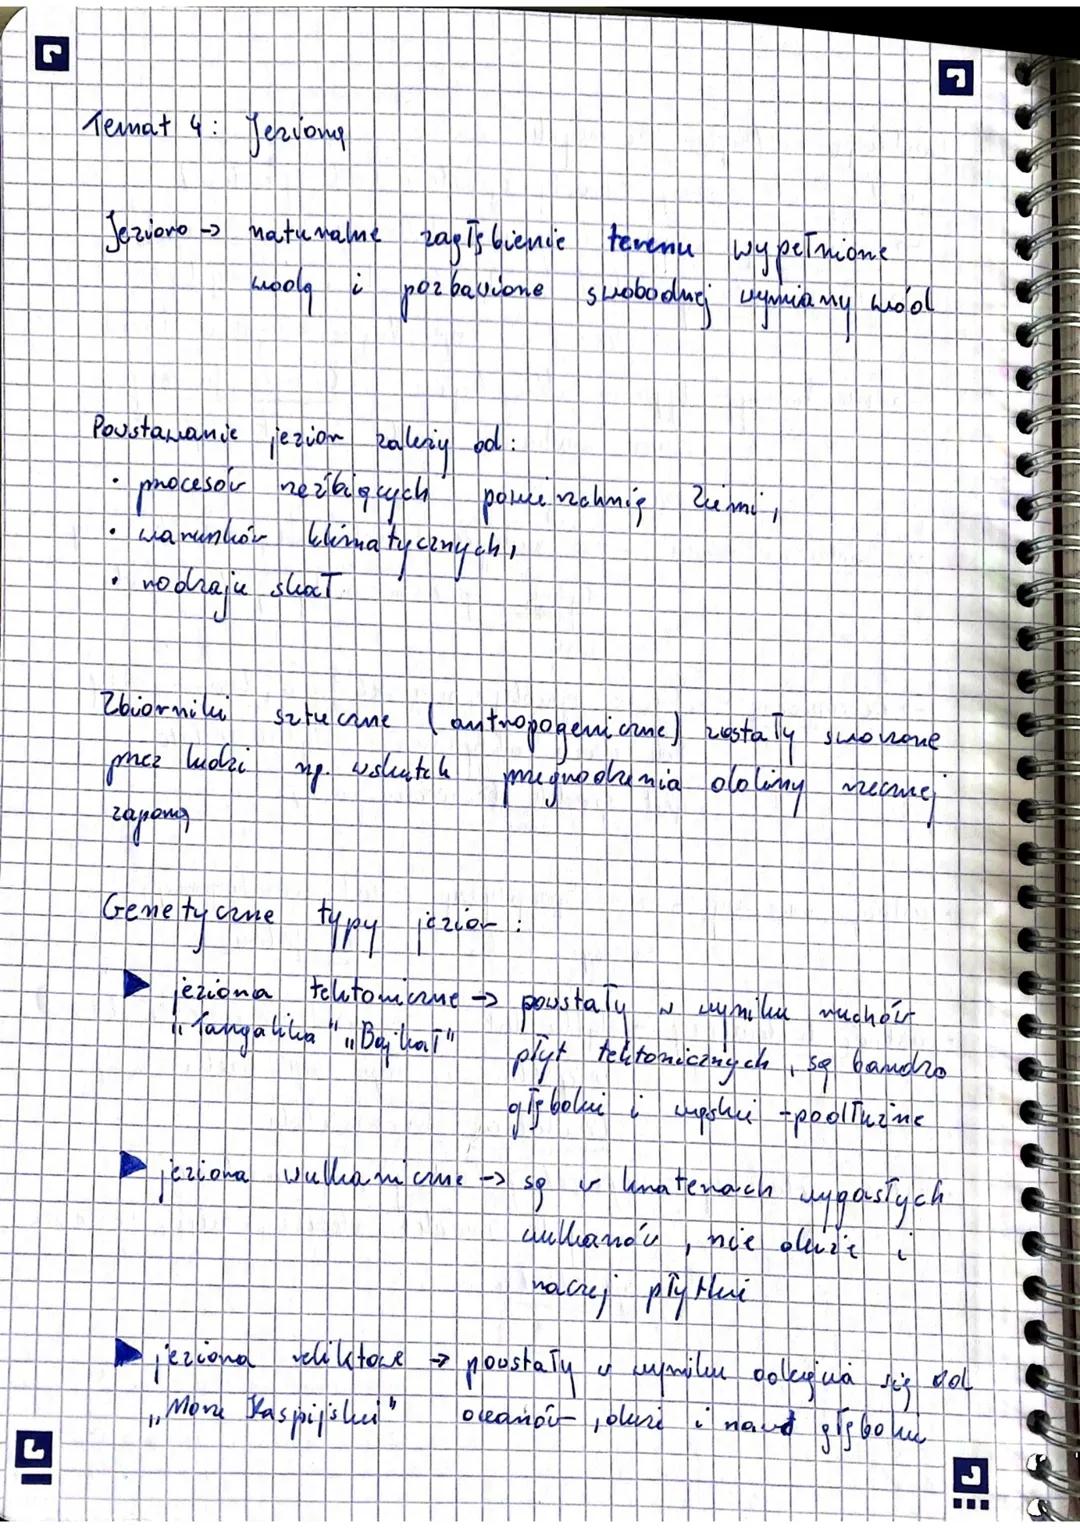 Temat 4: Jeziora
Jezioro → naturalne zagłębienie terenu wypełnione
wodą i pozbawione swobodnej wymiany wód
Powstawanie jezior zależy od:
• procesów rzeźbiących powierzchnię Ziemi,
• warunków klimatycznych,
• rodzaju skał
Zbiorniki sztuczne (antropogeniczne) zostały stworzone
przez ludzi np. wskutek przegrodzenia doliny rzecznej
zaporą
Genetyczne typy jezior:
▶ jeziora tektoniczne → powstały w wyniku ruchów
„Tangalika" „Bajkał" płyt tektonicznych, są bardzo
głębokie i wąskie - podłużne
▶ jeziora wulkaniczne → są w kraterach wygasłych
wulkanów, nie duże i
raczej płytkie
▶ jeziora reliktowe → powstały w wyniku odcięcia się od
„Morze Kaspijskie" oceanów, duże i głębokie